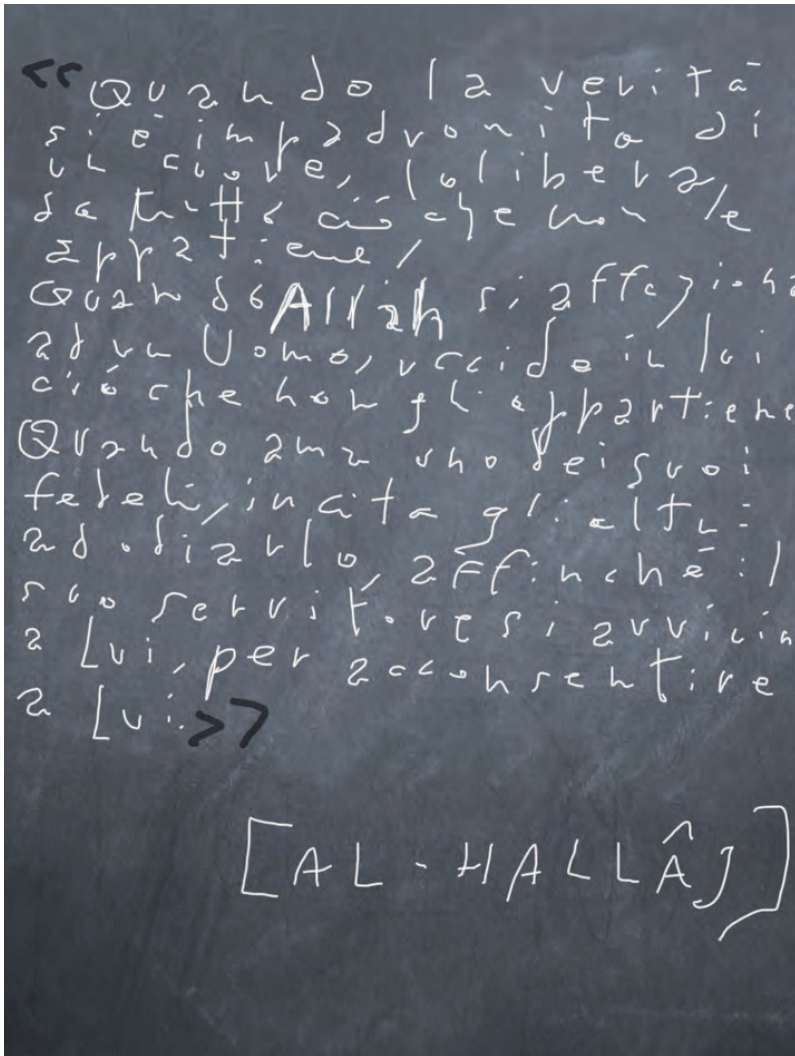 <<Quando la verità
si è impadronita di
un cuore, lo libera
da tutto ciò che non le
appratiene,
Quando Allah si affeziona
ad un Uomo, uccide in lui
ciò che non gli appartiene
Quando ama uno dei suoi
fedeli, incita gli altri
ad odiarlo, affinché il
suo servitore si avvicin
a Lui, per acconsentire
a Lui.>>
[AL-HALLÂJ]